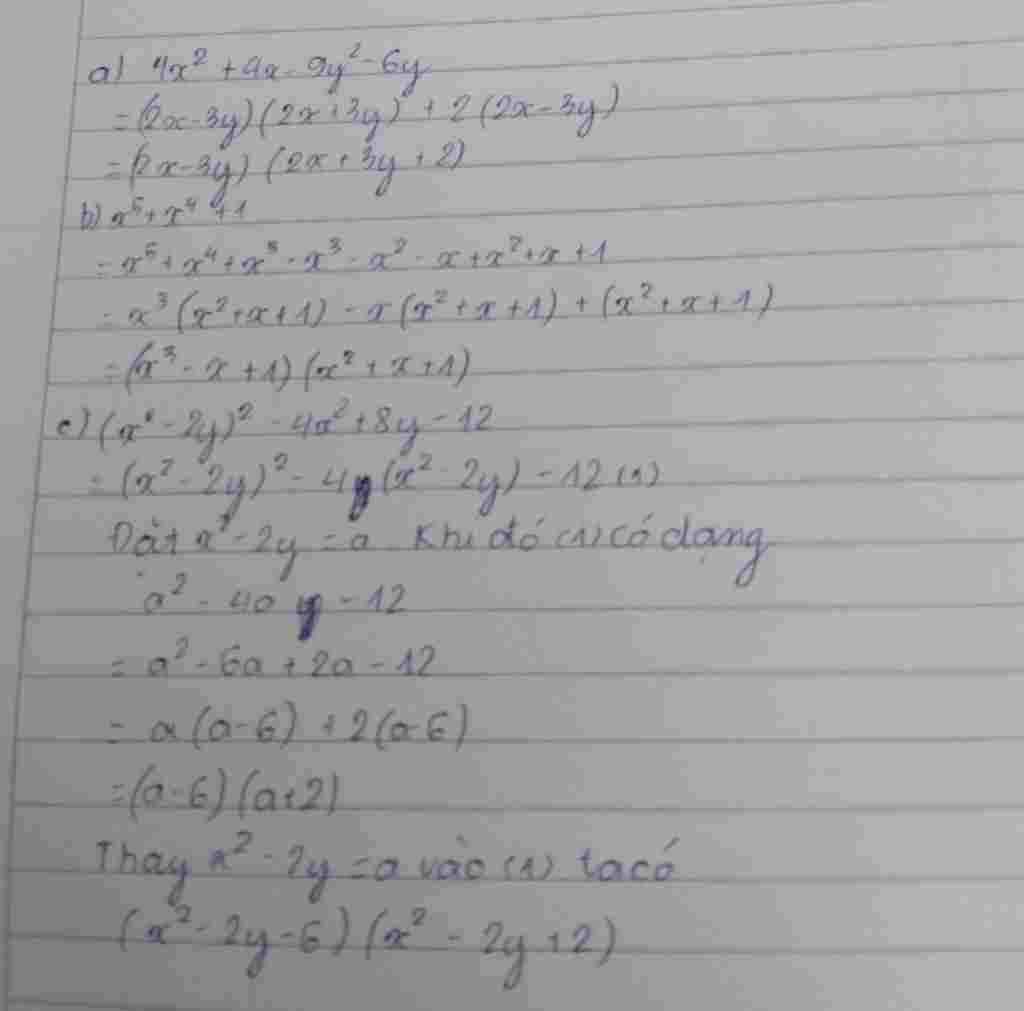 a) 4x² + 4x - 9y² - 6y
= (2x - 3y)(2x + 3y) + 2(2x - 3y)
= (2x - 3y)(2x + 3y + 2)
b) x⁵ + x⁴ + 1
= x⁵ + x⁴ + x³ - x³ - x² - x + x² + x + 1
= x³(x² + x + 1) - x(x² + x + 1) + (x² + x + 1)
= (x³ - x + 1)(x² + x + 1)
c) (x² - 2y)² - 4x² + 8y - 12
= (x² - 2y)² - 4(x² - 2y) - 12 (1)
Đặt x² - 2y = a Khi đó (1) có dạng
a² - 4a - 12
= a² - 6a + 2a - 12
= a(a - 6) + 2(a - 6)
= (a - 6)(a + 2)
Thay x² - 2y = a vào (1) ta có
(x² - 2y - 6)(x² - 2y + 2)